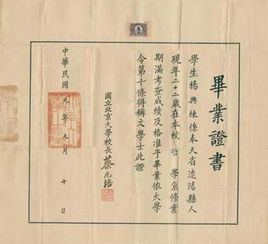 畢業證書
學生楊興棟係奉天省遼陽縣人
現年二十二歲在本校 學系修業
期滿考查成績及格准予畢業依大學
令第十條得稱文學士此證
國立北京大學校長蔡元培
中華民國九年 月十日